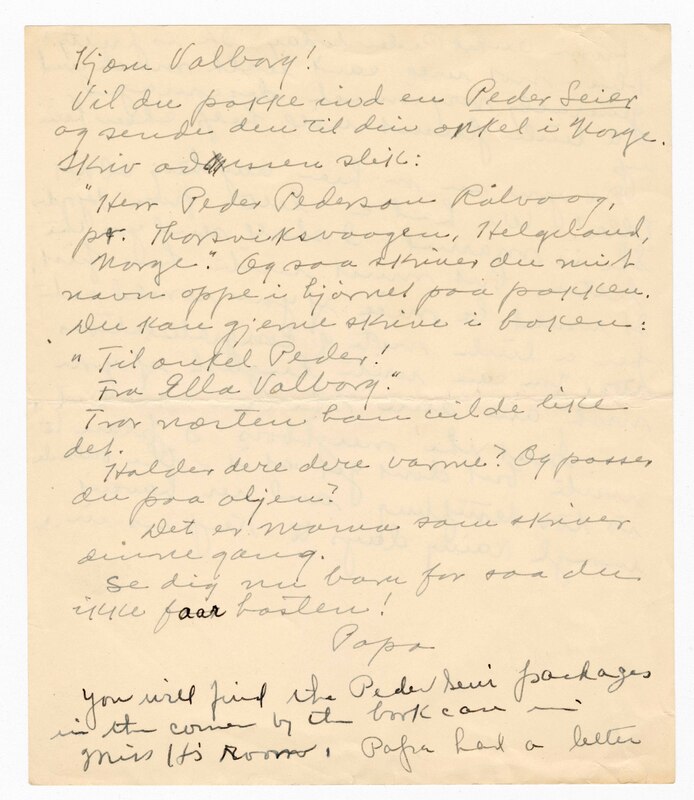 Kjære Valborg!
Vil du pakke ind en Peder Seier
og sende den til din onkel i Norge.
Skriv adressen slik:
"Herr Peder Pederson Rølvaag,
pr. Thorsviksvaagen, Helgeland,
Norge." Og saa skriver du mit
navn oppe i hjørnet paa pakken.
Du kan gjerne skrive i boken:
"Til onkel Peder!
Fra Ella Valborg."
Tror næsten han vilde like
det.
Holder dere dere varme? Og passer
du paa oljen?
Det er mama som skriver
denne gang.
Se dig nu barn for saa du
ikke faar hosten!
Papa
You will find the Peder Seier packages
in the corner by the book case in
Miss H's room. Papa had a letter